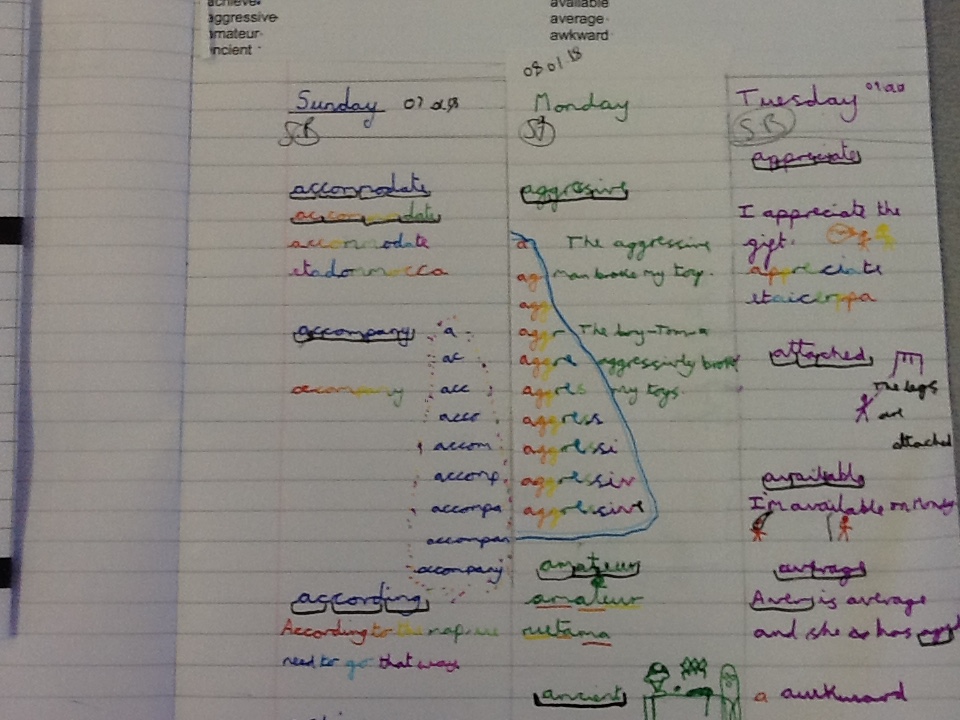 achieve
aggressive
amateur
ancient
available
average
awkward
Sunday
SB
accomodate
accommodate
accommodate
etadommocca
accompany
a
ac
acc
acco
accom
accomp
accompa
accompan
accompany
accompany
according
According to the map, we
need to go that way
08.01.18
Monday
aggressive
a
ag
agg
aggr
aggre
aggres
aggress
aggressi
aggressiv
aggressive
The aggressive
man broke my toy.
The boy-Tom-a
aggressively broke
my toys.
amateur
amateur
ruetama
ancient
Tuesday
SB
appreciate
I appreciate the
gift.
appreciate
etaicerppa
attached
The legs
are
attached
available
I'm available on Monday
average
Avery is average
and she has
a awkward